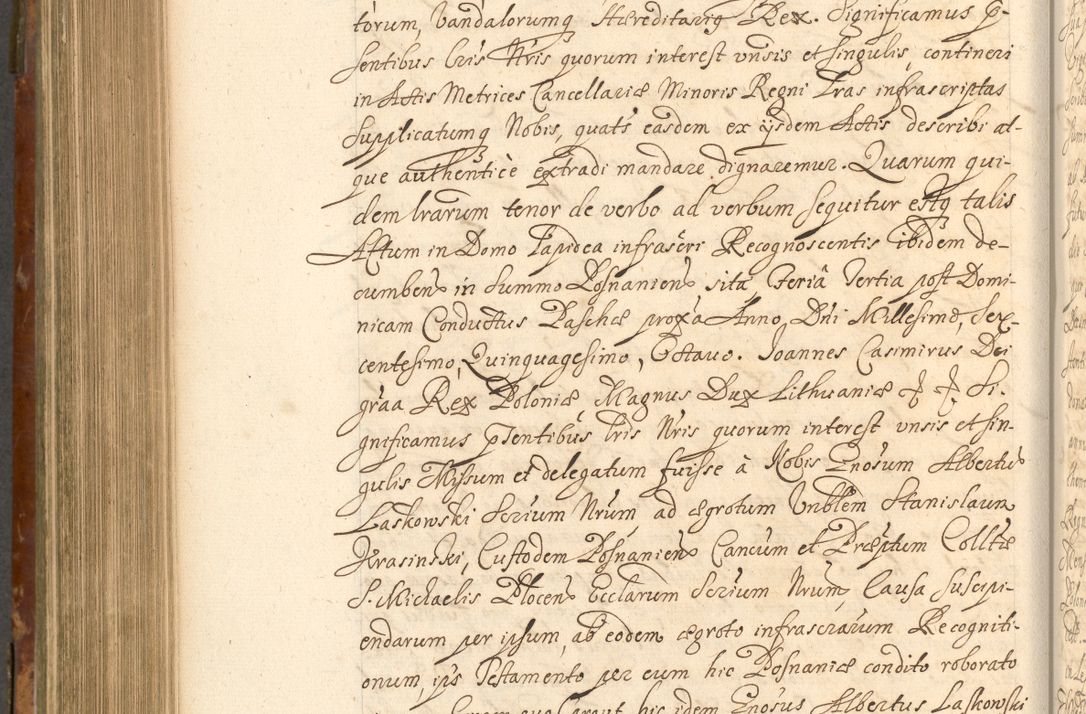 torum, Vandalorumq Hæreditariq Rex. Significamus p-
sentibus Lris Nris quorum interest vnsis et singulis, contineri
in Actis Metrices Cancellariæ Minoris Regni Lras infrascriptas
supplicatumq Nobis, quats easdem ex ijsdem Actis describi at-
que authenticè extradi mandare dignaremur. Quarum qui-
dem lrarum tenor de verbo ad verbum sequitur estq talis
Actum in Domo Lapidea infrascri Recognoscentis ibidem de-
cumbens in summo Posnaniens sita Feriâ Tertia post Domi-
nicam Conductus Paschæ proxa Anno Dni Millesimo, Sex-
centesimo, Quinquagesimo, Octavo. Joannes Casimirus Dei
graa Rex Poloniæ Magnus Dux Lithuaniæ Si-
gnificamus psentibus Lris Nris quorum interest vnsis et sin-
gulis Missum et delegatum fuisse à Nobis Gnosum Albertus
Laskowski Scrium Nrum ad ægrotum Vnblem Stanislaum
Krasinski, Custodem Posnaniens Cancum et Præptum Colltæ
S. Michaelis Plocens Ecclarum Scrium Nrum, Causa suscipi-
endarum per ipsum, ab eodem ægroto infrascrarum Recogniti-
onum ips Testamento per eum hic Posnaniæ condito roborato
hic idem Gnosus Albertus Laskowski